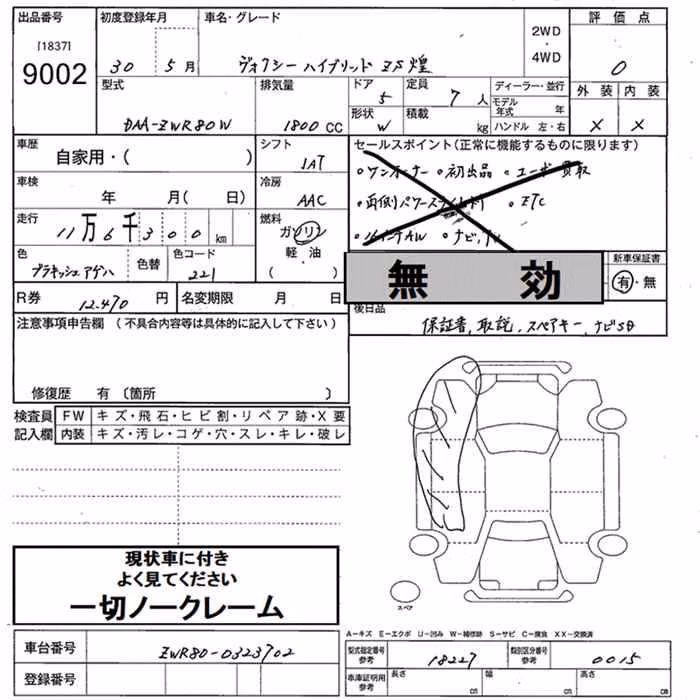 出品番号 初度登録年月 車名・グレード 2WD・4WD 評価点
[1837]
9002
30 5月 ヴォクシー ハイブリッド ZS煌 0
型式 排気量 ドア 5 定員 7人 ディーラー・並行 外装 内装
モデル年式 年
DAA-ZWR80W 1800 CC 形状 W 積載 kg ハンドル 左・右 X X
車歴 シフト セールスポイント(正常に機能するものに限ります)
自家用・( ) IAT
・ワンオーナー ・初出品 ・ユーザー買取
車検 冷房
年 月( 日) AAC ・両側パワースライド ・ETC
走行 燃料
11万6千300km ガソリン ・16インチAW ・ナビ,TV
軽・油
( )
色 色替 色コード
ブラキッシュアゲハ 221
無 効
新車保証書
有・無
R券 12.470 円 名変期限 月 日
後日品
保証書,取説,スペアキー,ナビSD
注意事項申告欄 (不具合内容等は具体的に記入して下さい)
修復歴 有 〔箇所 〕
検査員 FW キズ・飛石・ヒビ割・リペア跡・X要
記入欄 内装 キズ・汚レ・コゲ・穴・スレ・キレ・破レ
現状車に付き
よく見てください
一切ノークレーム
スペア
A-キズ E-エクボ U-凹み W-補修跡 S-サビ C-腐食 XX-交換済
車台番号 ZWR80-0323702
型式指定番号 参考 18227 類別区分番号 参考 0015
登録番号
車庫証明用 参考 長さ cm 幅 cm 高さ cm